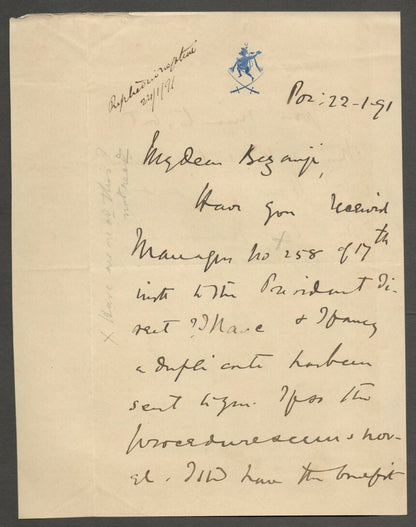 Replied in negative
24/1/91
Poi: 22-1-91
My dear Bezonji,
Have you received
Managers No 258 of 17th
inst to the President di-
rect? I have & I fancy
a duplicate has been
sent to you. If so the
procedure seems nov-
el. I shd have the benefit
x Have we recd this?